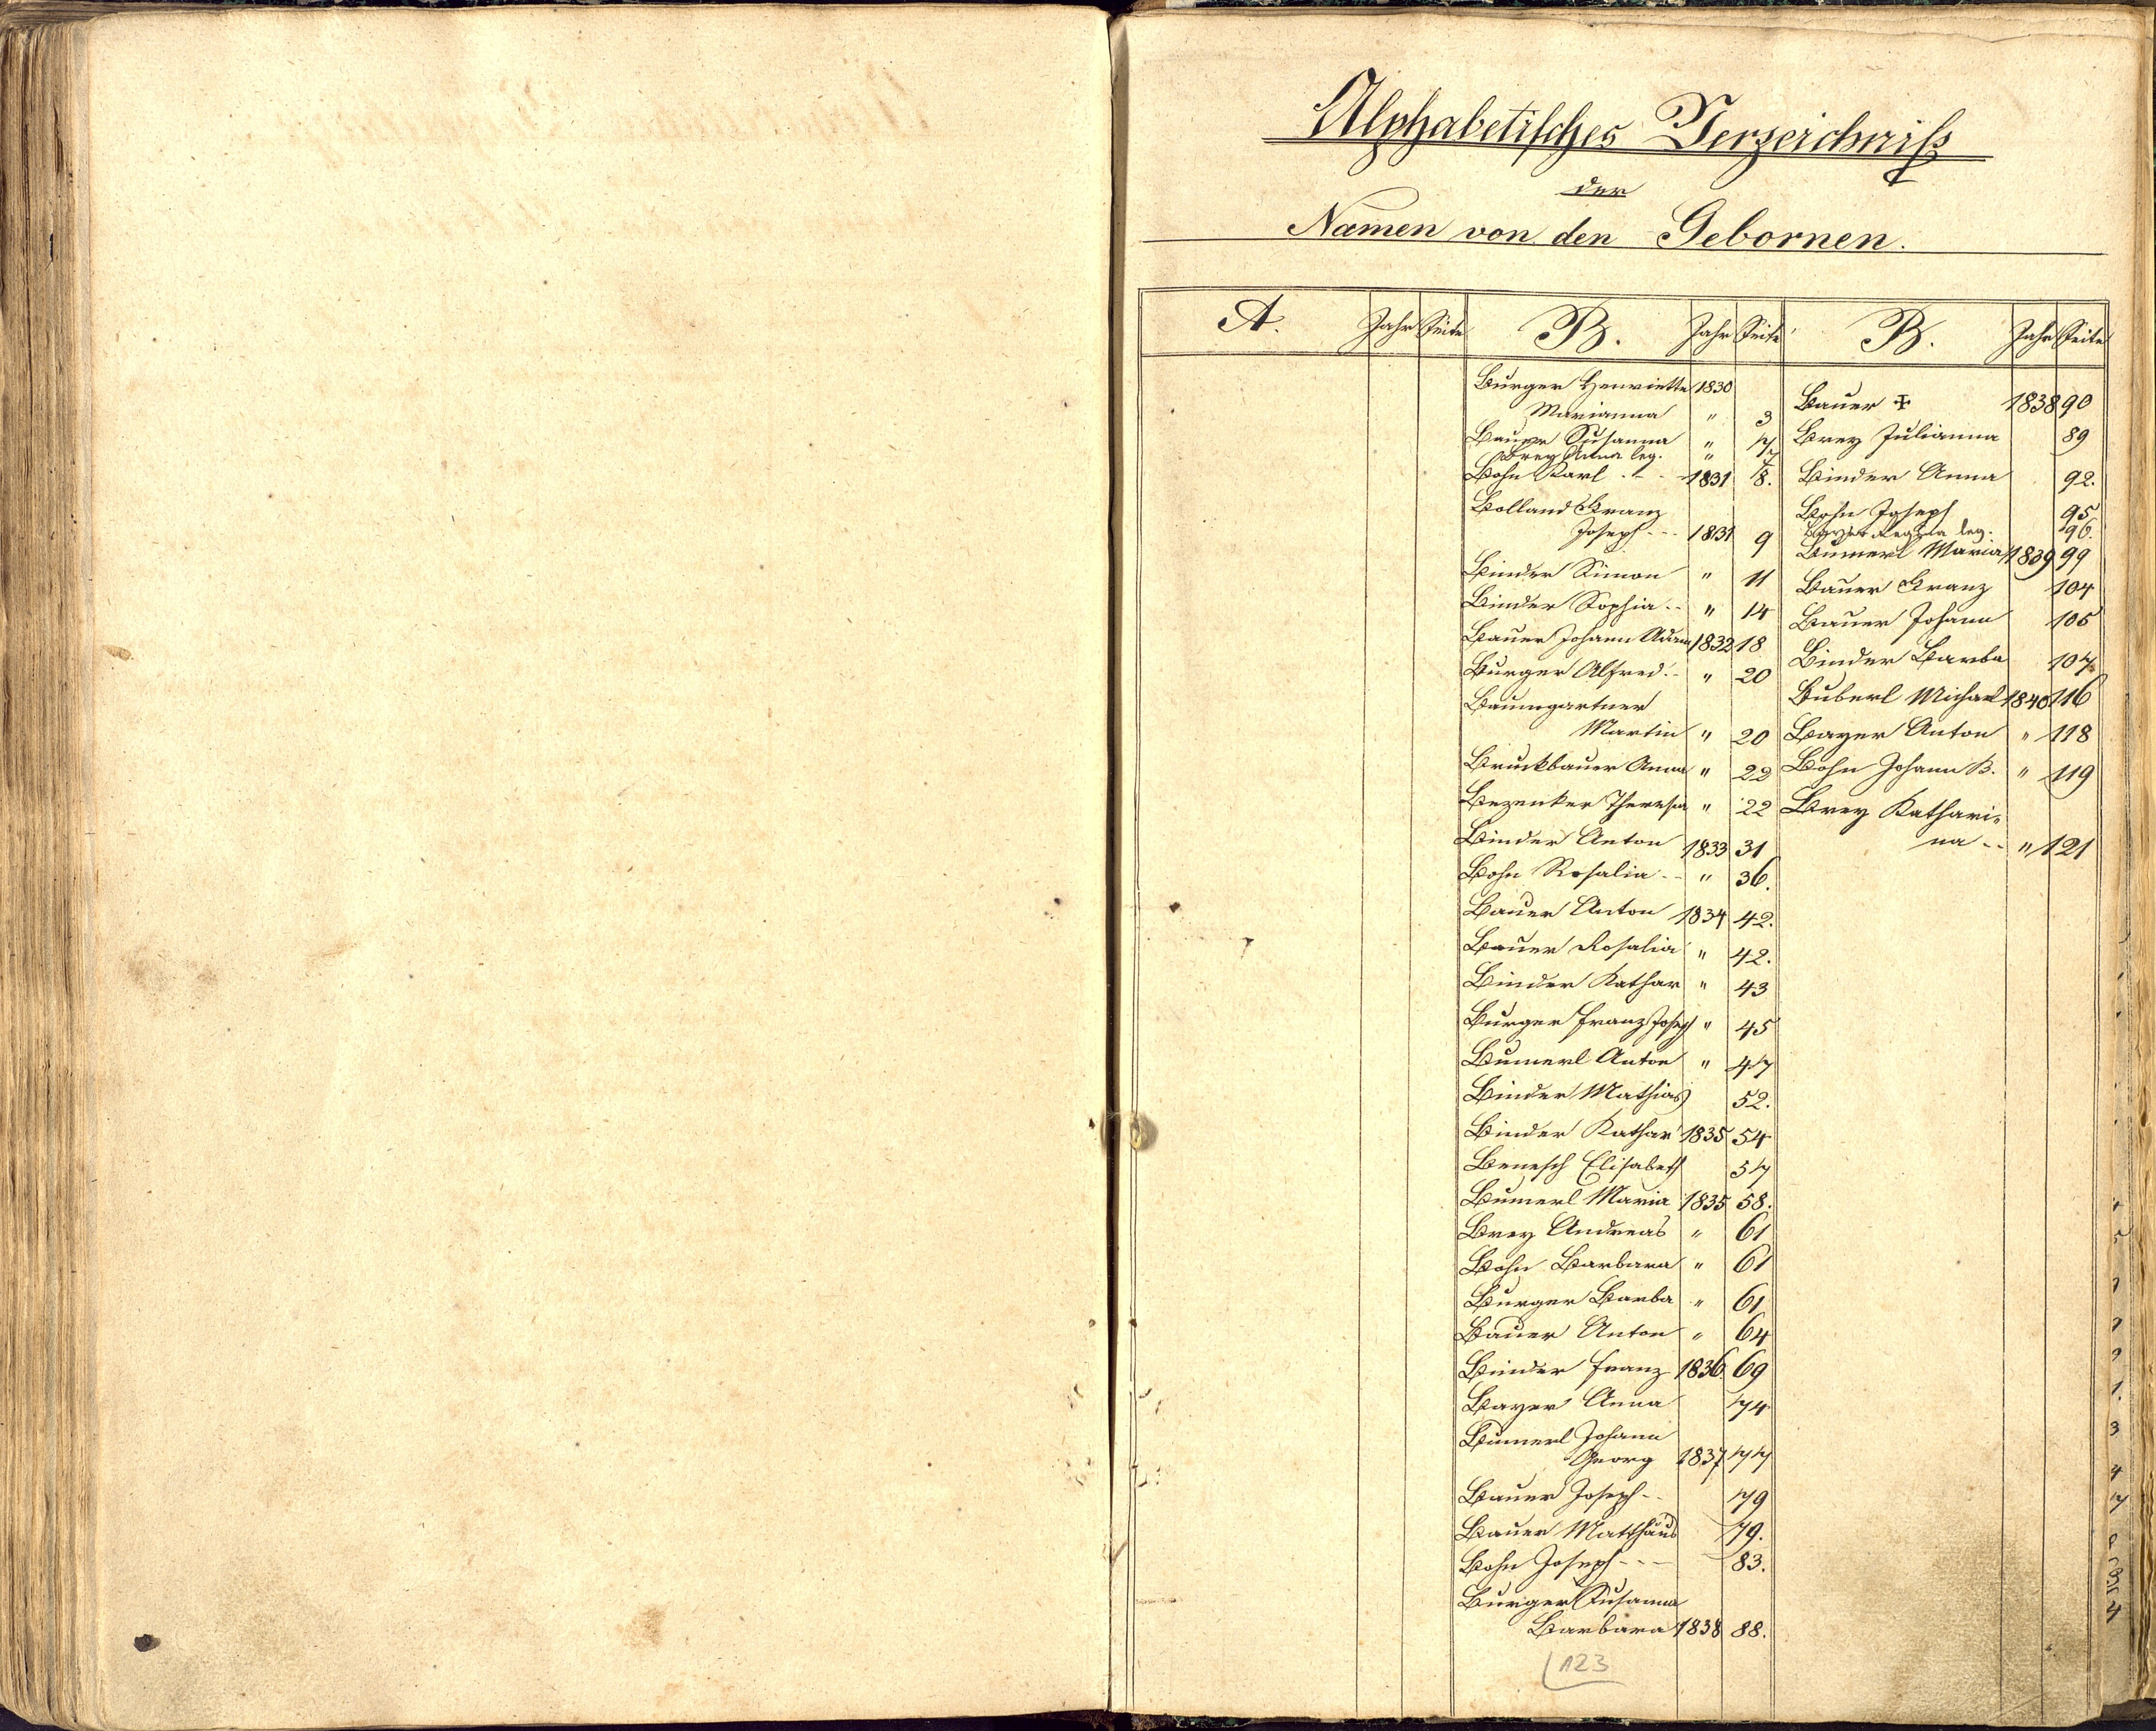 Alphabetisches Verzeichniß
der
Namen von den Gebornen.
A. Jahr Seite
B. Jahr Seite
Burger Henriette 1830
Marianna " 3
Bauer Susanna " 7
Brey Anna leg. " 7
Bohn Karl 1831 8.
Bolland Franz
Joseph - - - 1831 9
Binder Simon " 11
Binder Sophia - - " 14
Bauer Johann Adam 1832 18
Burger Alfred - " 20
Baumgartner
Martin " 20
Bruckbauer Anna " 22
Bezenker Theresia " 22
Binder Anton 1833 31
Bohn Rosalia - - " 36.
Bauer Anton 1834 42.
Bauer Rosalia " 42.
Binder Kathar " 43
Burger Franz Joseph " 45
Bumerl Anton " 47
Binder Mathias 52.
Binder Kathar 1835 54
Benesch Elisabeth 57
Bumerl Maria 1835 58.
Brey Andreas " 61
Bohn Barbara " 61
Burger Barba " 61
Bauer Anton " 64
Binder Franz 1836 69
Bayer Anna 74
Bumerl Johann
Georg 1837 77
Bauer Joseph - - 79
Bauer Matthäus 79.
Bohn Joseph - - - 83.
Burger Susanna
Barbara 1838 88.
123
B. Jahr Seite
Bauer ✠ 1838 90
Brey Julianna 89
Binder Anna 92.
Bohn Joseph 95
Bayer Regina leg. 96.
Bumerl Maria 1839 99
Bauer Franz 104
Bauer Johann 105
Binder Barba 107
Buberl Michael 1840 116
Bayer Anton " 118
Bohn Johann B. " 119
Brey Kathari-
na - - " 121